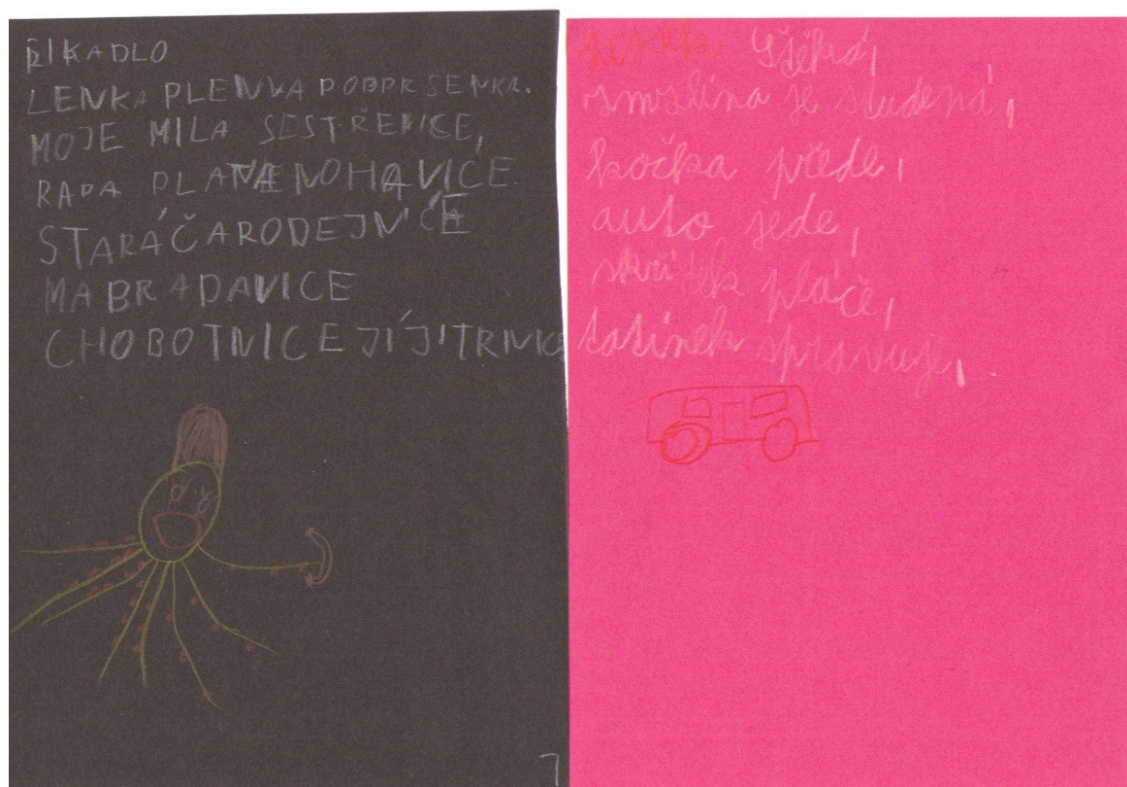 ŘIKADLO
LENKA PLENKA PODPRSENKA.
MOJE MILA SESTŘENICE,
RADA PLAVE NOHAVICE.
STARÁ ČARODEJNICE
MA BRADAVICE
CHOBOTNICE JÍ JITRNICE
pejsek štěká,
zmrzlina je studená,
kočka přede,
auto jede,
skřítek pláče,
tatínek spravuje,